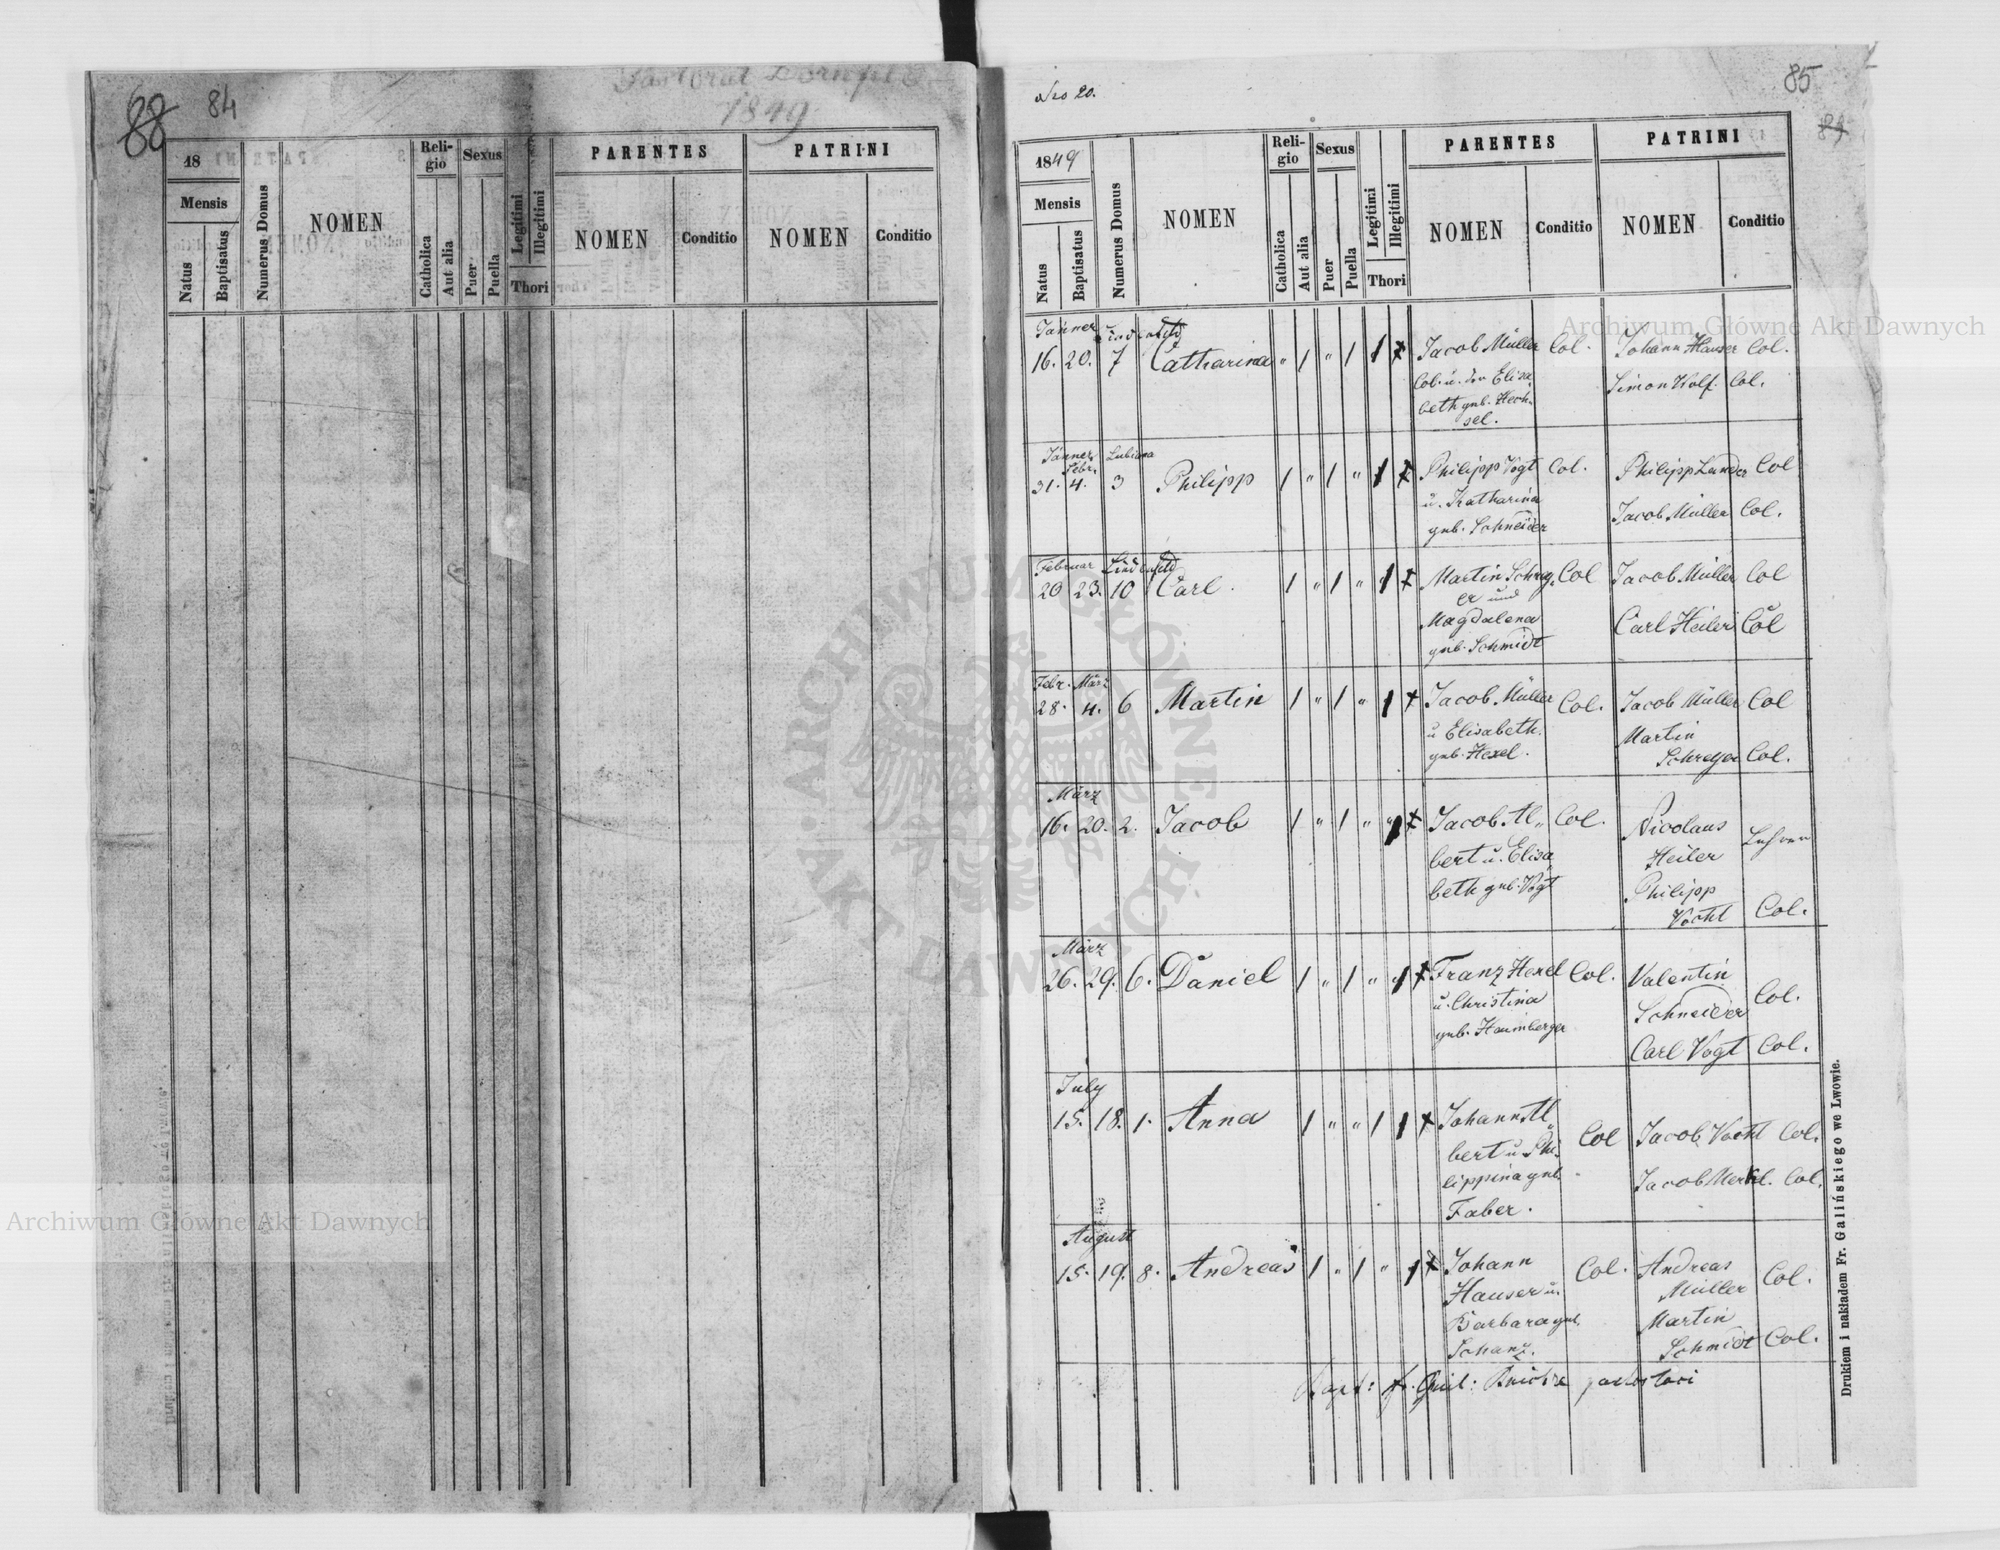 88 84
Pastorat Dornfeld
1849
18
Mensis
Natus
Baptisatus
Numerus Domus
NOMEN
Reli-
gio
Catholica
Aut alia
Sexus
Puer
Puella
Legitimi
Illegitimi
Thori
PARENTES
NOMEN
Conditio
PATRINI
NOMEN
Conditio
Archiwum Główne Akt Dawnych
Nro 20.
85
84
1849
Mensis
Natus
Baptisatus
Numerus Domus
NOMEN
Reli-
gio
Catholica
Aut alia
Sexus
Puer
Puella
Legitimi
Illegitimi
Thori
PARENTES
NOMEN
Conditio
PATRINI
NOMEN
Conditio
Archiwum Główne Akt Dawnych
Jänner Lindenfeld
16. 20. 7 Catharina " 1 " 1 1 Jacob Müller Col. Johann Hauser Col.
Col. u. der Elisa Simon Wolf. Col.
beth geb. Hech-
sel.
Jänner Febr. Lubiana
31. 4. 3 Philipp 1 " 1 " 1 Philipp Vogt Col. Philipp Lander Col
u. Katharina Jacob Müller Col.
geb. Schneider
Februar Lindenfeld
20 23. 10 Carl. 1 " 1 " 1 Martin Schrey- Col Jacob Müller Col
er und
Magdalena Carl Heiler Col
geb. Schmidt
Febr. März
28. 4. 6 Martin 1 " 1 " 1 Jacob Müller Col. Jacob Müller Col
u Elisabeth. Martin
geb. Hexel. Schreyer Col.
März
16. 20. 2. Jacob 1 " 1 " 1 Jacob Al„ Col. Nicolaus
bert u. Elisa Heiler Lehrer
beth geb. Vogt Philipp
Vocht Col.
März
26. 29. 6. Daniel 1 " 1 " 1 Franz Hexel Col. Valentin
u. Christina Schneider Col.
geb. Haimberger Carl Vogt Col.
July
15. 18. 1. Anna 1 " " 1 1 Johann Al„ Col Jacob Vocht Col.
bert u Phi-
lippina geb. Jacob Merkl. Col.
Faber.
August
15. 19. 8. Andreas 1 " 1 " 1 Johann Col. Andreas
Hauser u. Müller Col.
Barbara geb. Martin
Schanz. Schmidt Col.
Drukiem i nakładem Fr. Galińskiego we Lwowie.
ARCHIWUM GŁÓWNE AKT DAWNYCH